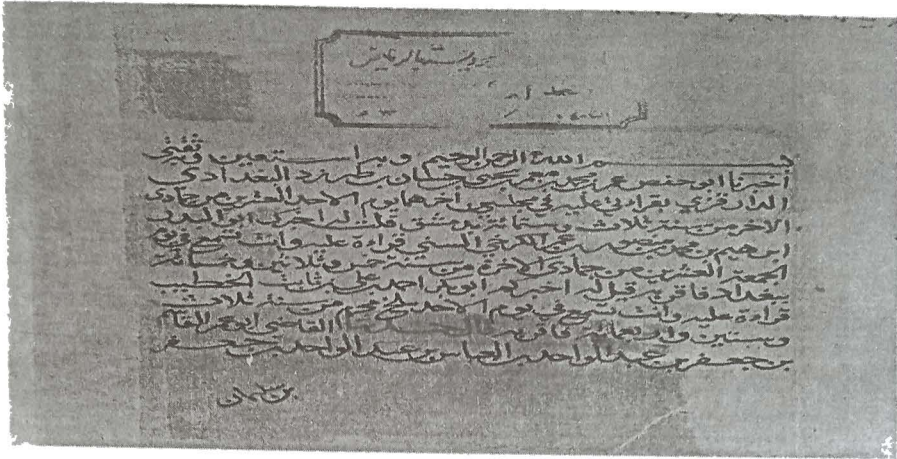 بسم الله الرحمن الرحيم وبه استعين وثقتي
اخبرنا ابو حفص عمر بن محمد بن معمر بن يحيى بن حسان بن طبرزد البغدادي
الدارقزي بقراءتي عليه في مجلسين اخرهما يوم الاحد العشرين من جمادى
الاخر من سنة ثلاث وستمائة بدمشق قلت له اخبركم ابو البدر
ابرهيم بن محمد بن منصور بن عمر الكرخي السني قراءة عليه وانت تسمع في يوم
الجمعة العشرين من جمادى الاخرة من سنة خمس وثلاثين وخمسمائة
ببغداد فاقر به قيل له اخبركم ابو بكر احمد بن علي بن ثابت الخطيب
قراءة عليه وانت تسمع في يوم الاحد من سنة ثلاث
وستين واربعمائة فاقر به القاضي ابو عمر القاسم
بن جعفر بن عبد الواحد بن العباس بن عبد الواحد بن جعفر
بن سليمان